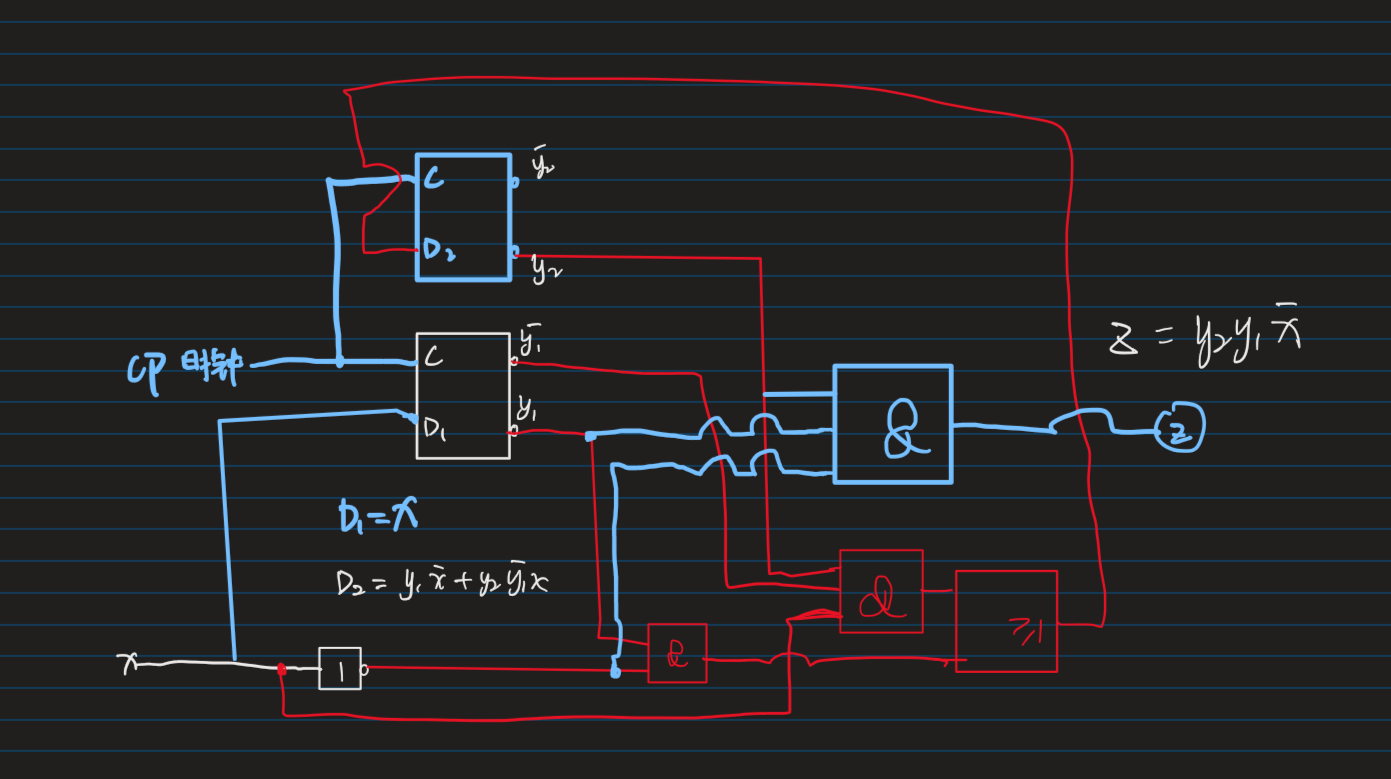 ȳ₂
C
D₂
y₂
CP 时钟
C
ȳ₁
y₁
D₁
Z = y₂y₁x̄
&
Z
D₁=x
D₂ = y₁x̄+y₂ȳ₁x
&
≥1
x
1
&